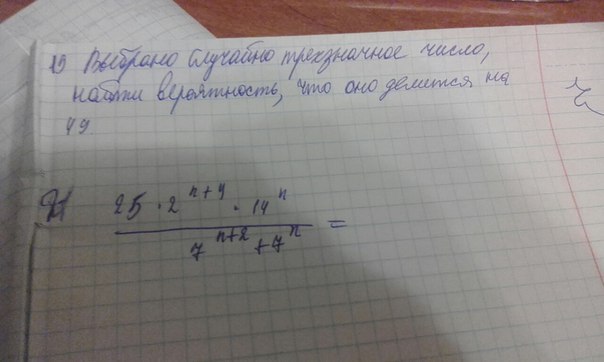 19 Выбрано случайно трехзначное число,
найти вероятность, что оно делится на
49.
25 · 2^{n+4} · 14^n
7^{n+2} + 7^n
=